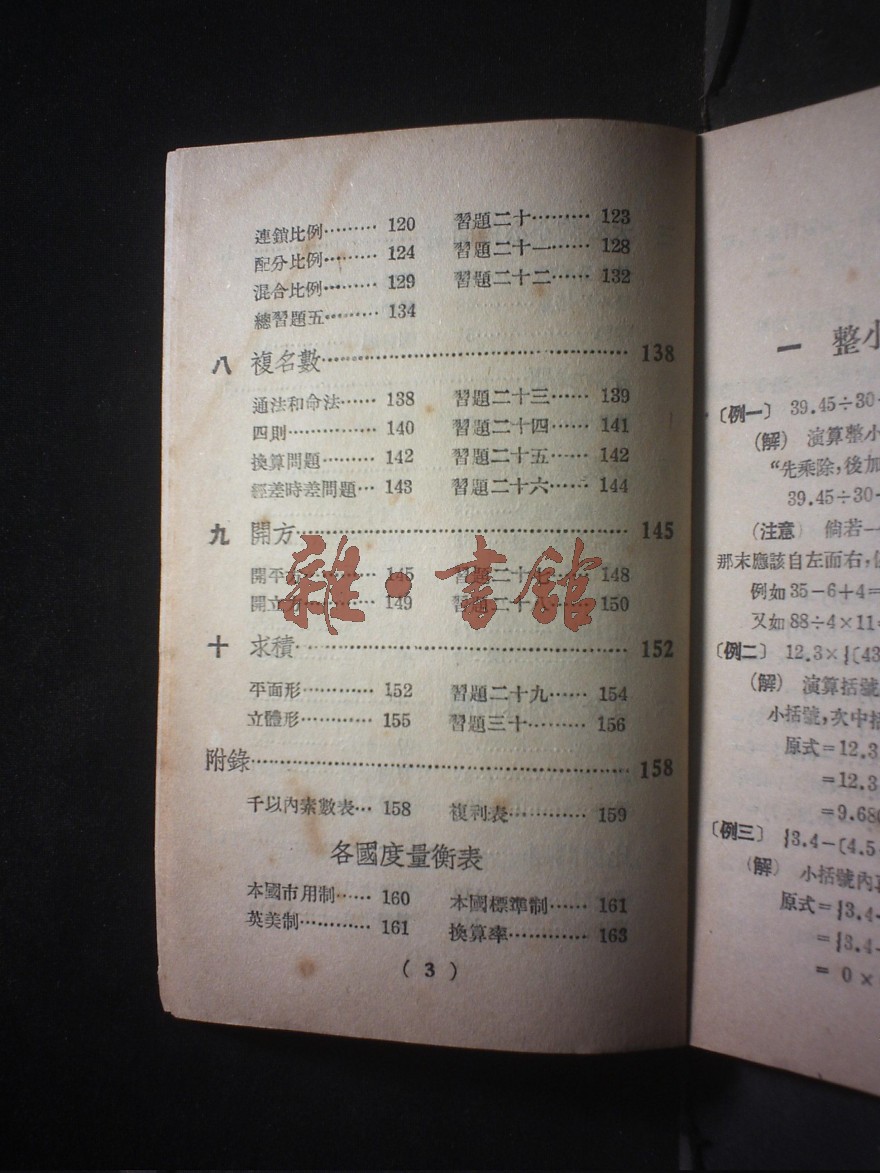 連鎖比例········· 120 習題二十········· 123
配分比例········· 124 習題二十一······ 128
混合比例········· 129 習題二十二······ 132
總習題五········· 134
八 複名數·················· 138
通法和命法······ 138 習題二十三······ 139
四則··············· 140 習題二十四······ 141
換算問題········· 142 習題二十五······ 142
經差時差問題··· 143 習題二十六······ 144
九 開方·················· 145
開平方············ 145 習題二十七······ 148
開立方············ 149 習題二十八······ 150
十 求積·················· 152
平面形············ 152 習題二十九······ 154
立體形············ 155 習題三十········· 156
附錄·················· 158
千以內素數表··· 158 複利表············ 159
各國度量衡表
本國市用制······ 160 本國標準制······ 161
英美制············ 161 換算率············ 163
( 3 )
雜·書館
一 整小
〔例一〕 39.45÷30
(解) 演算整小
“先乘除,後加
39.45÷30
(注意) 倘若一
那末應該自左而右,
例如 35－6＋4＝
又如 88÷4×11
〔例二〕 12.3×{〔43
(解) 演算括號
小括號,次中括
原式＝12.3
＝12.3
＝9.680
〔例三〕 {3.4－〔4.5
(解) 小括號內
原式＝{3.4－
＝{3.4
＝ 0 ×